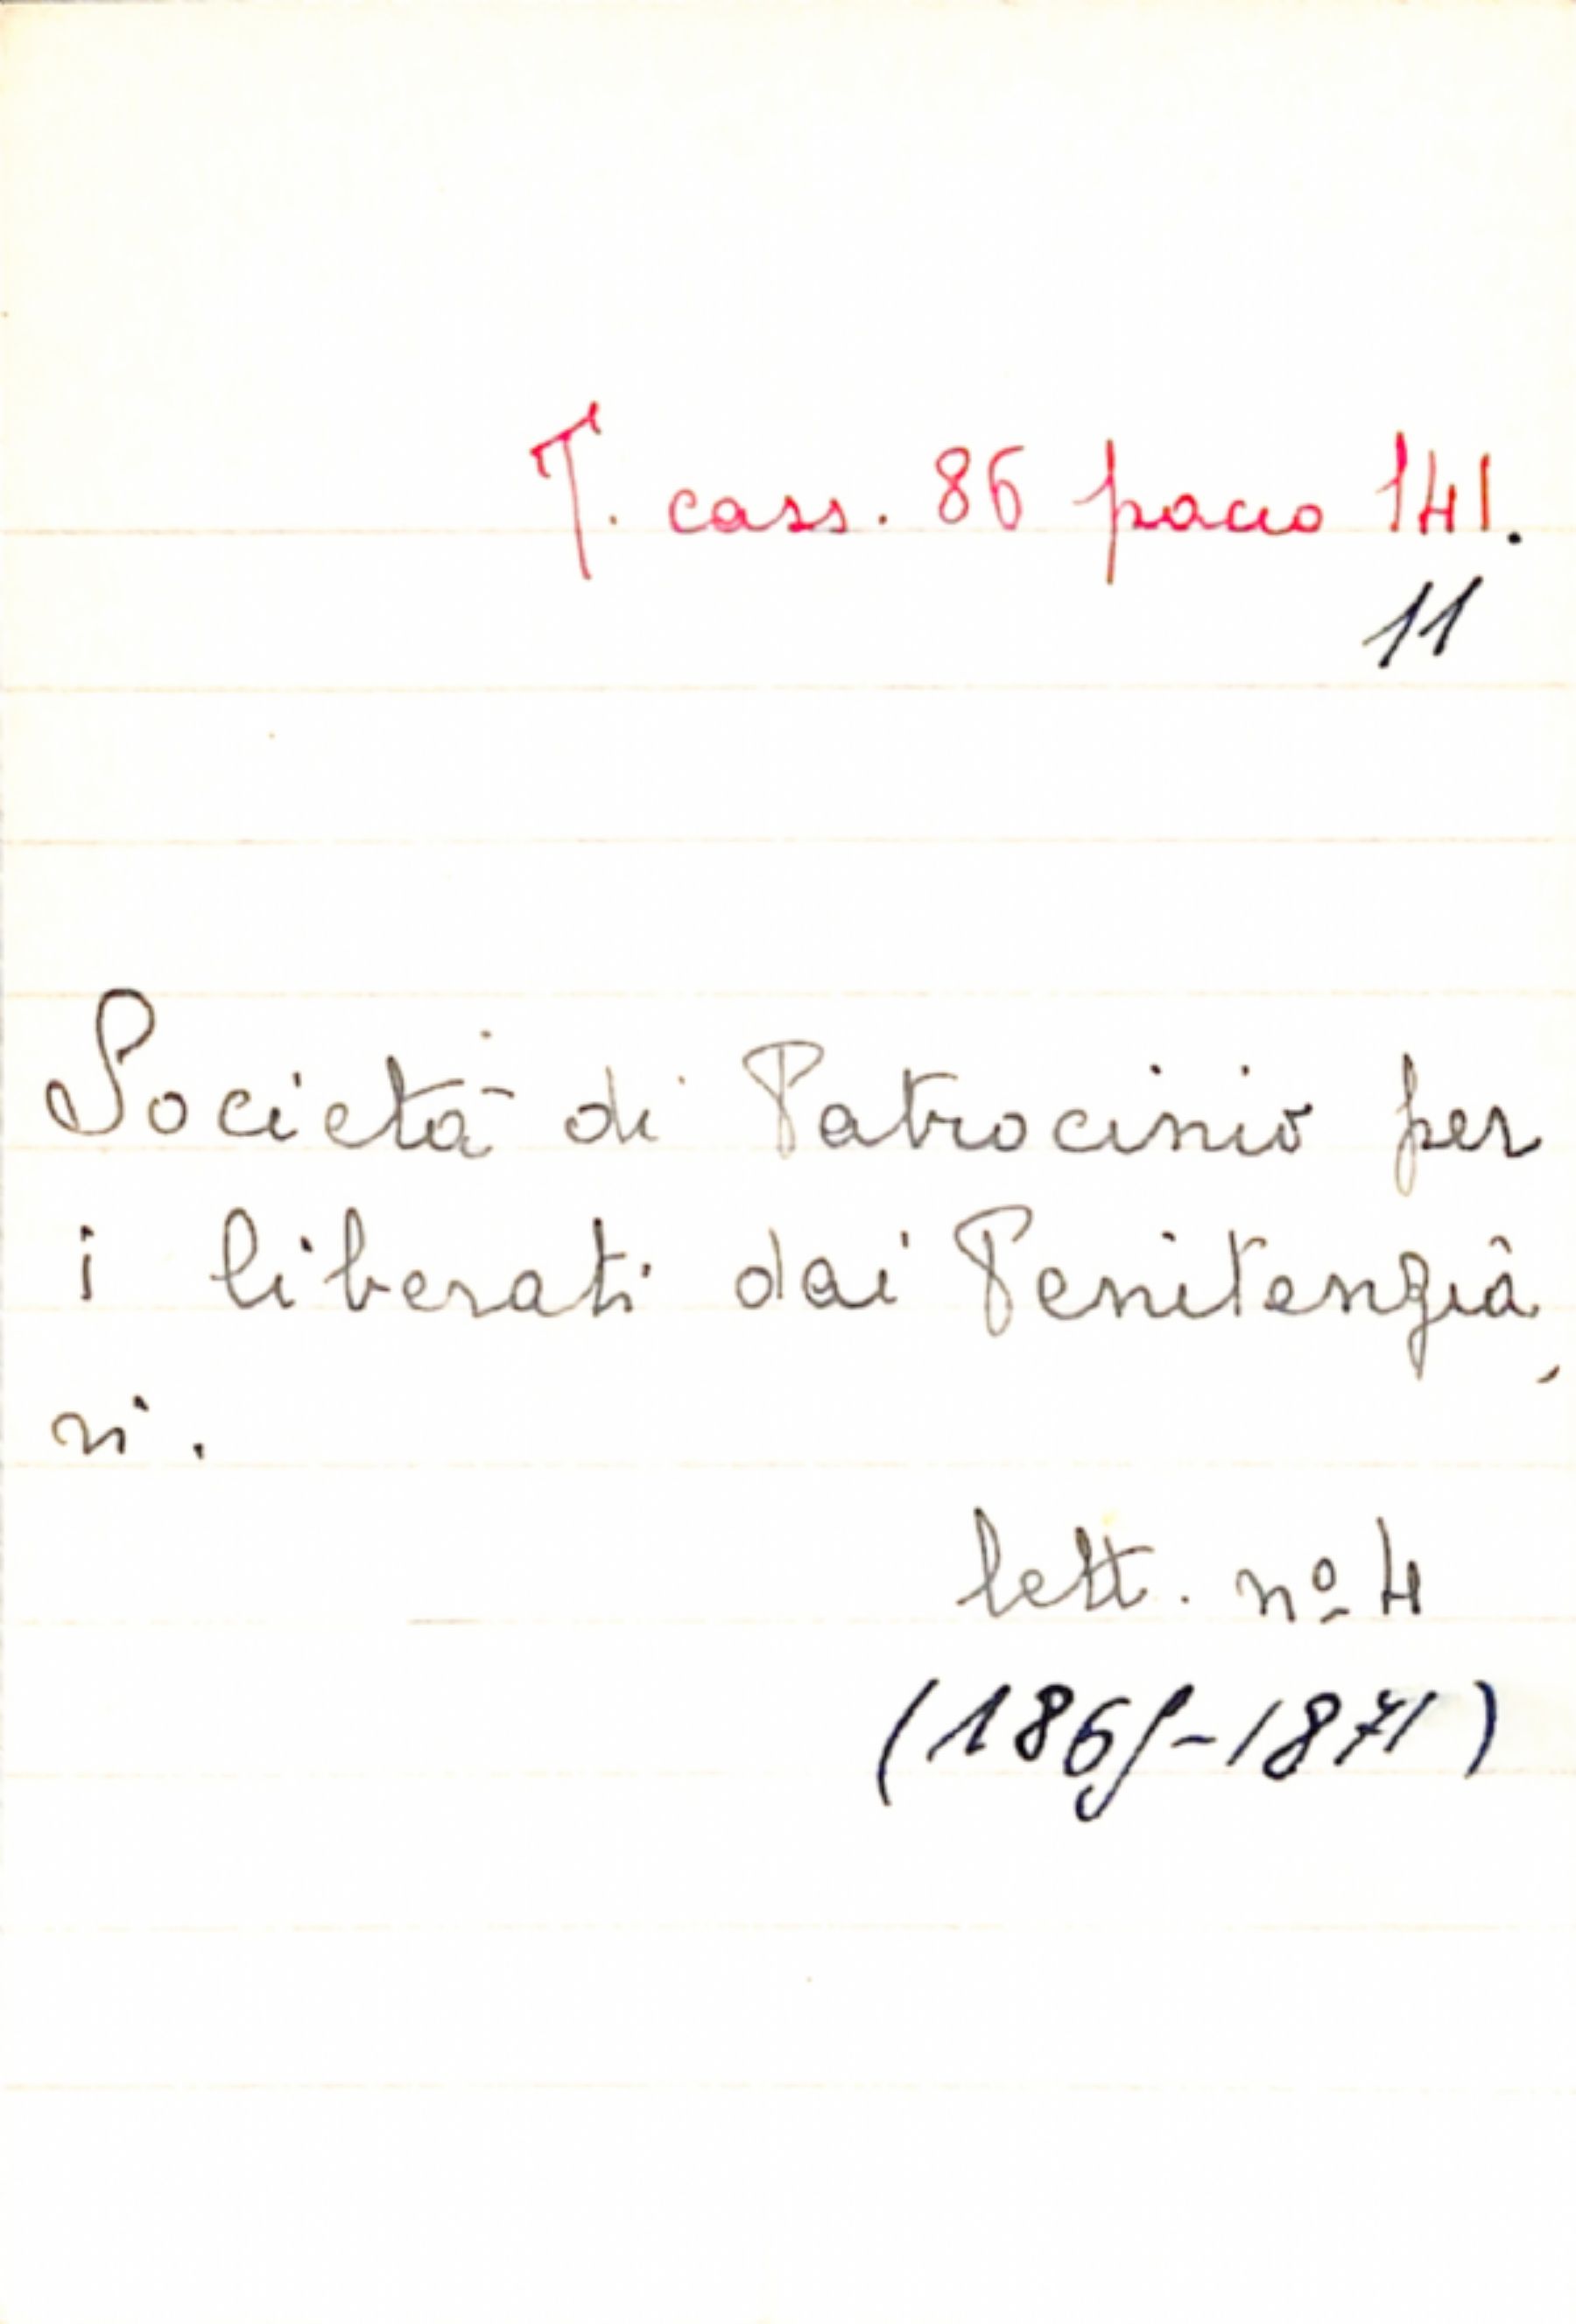 T. cass. 86 pacco 141.
11
Società di Patrocinio per
i liberati dai Penitenzia
ri.
lett. nº 4
(1869-1871)